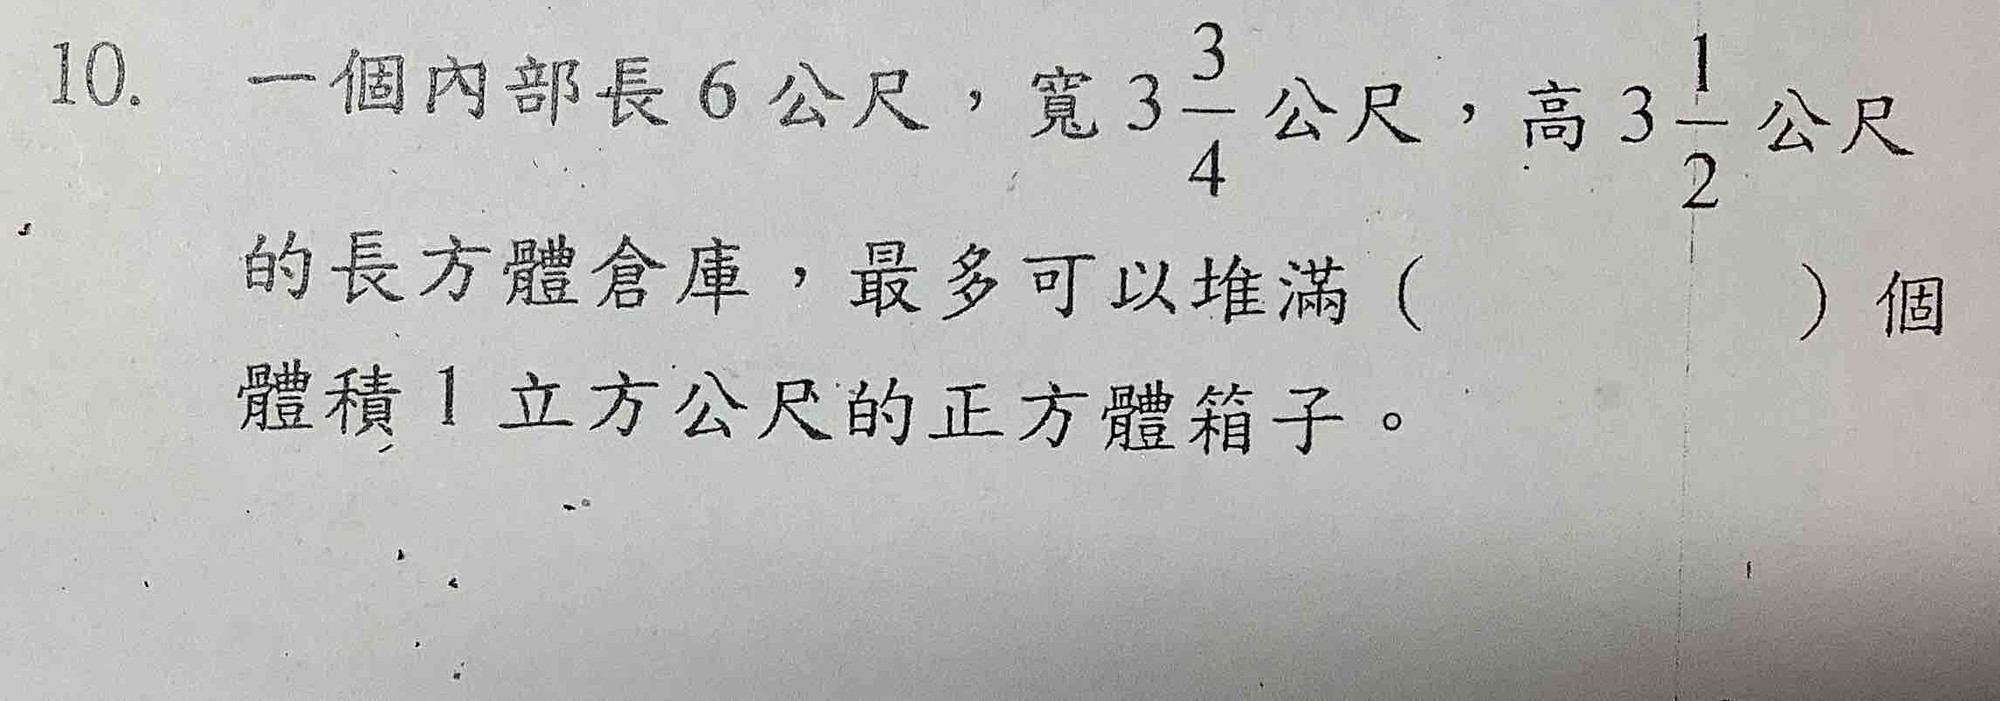 10. 一個內部長 6 公尺，寬 3 3/4 公尺，高 3 1/2 公尺
的長方體倉庫，最多可以堆滿（　　　　）個
體積 1 立方公尺的正方體箱子。